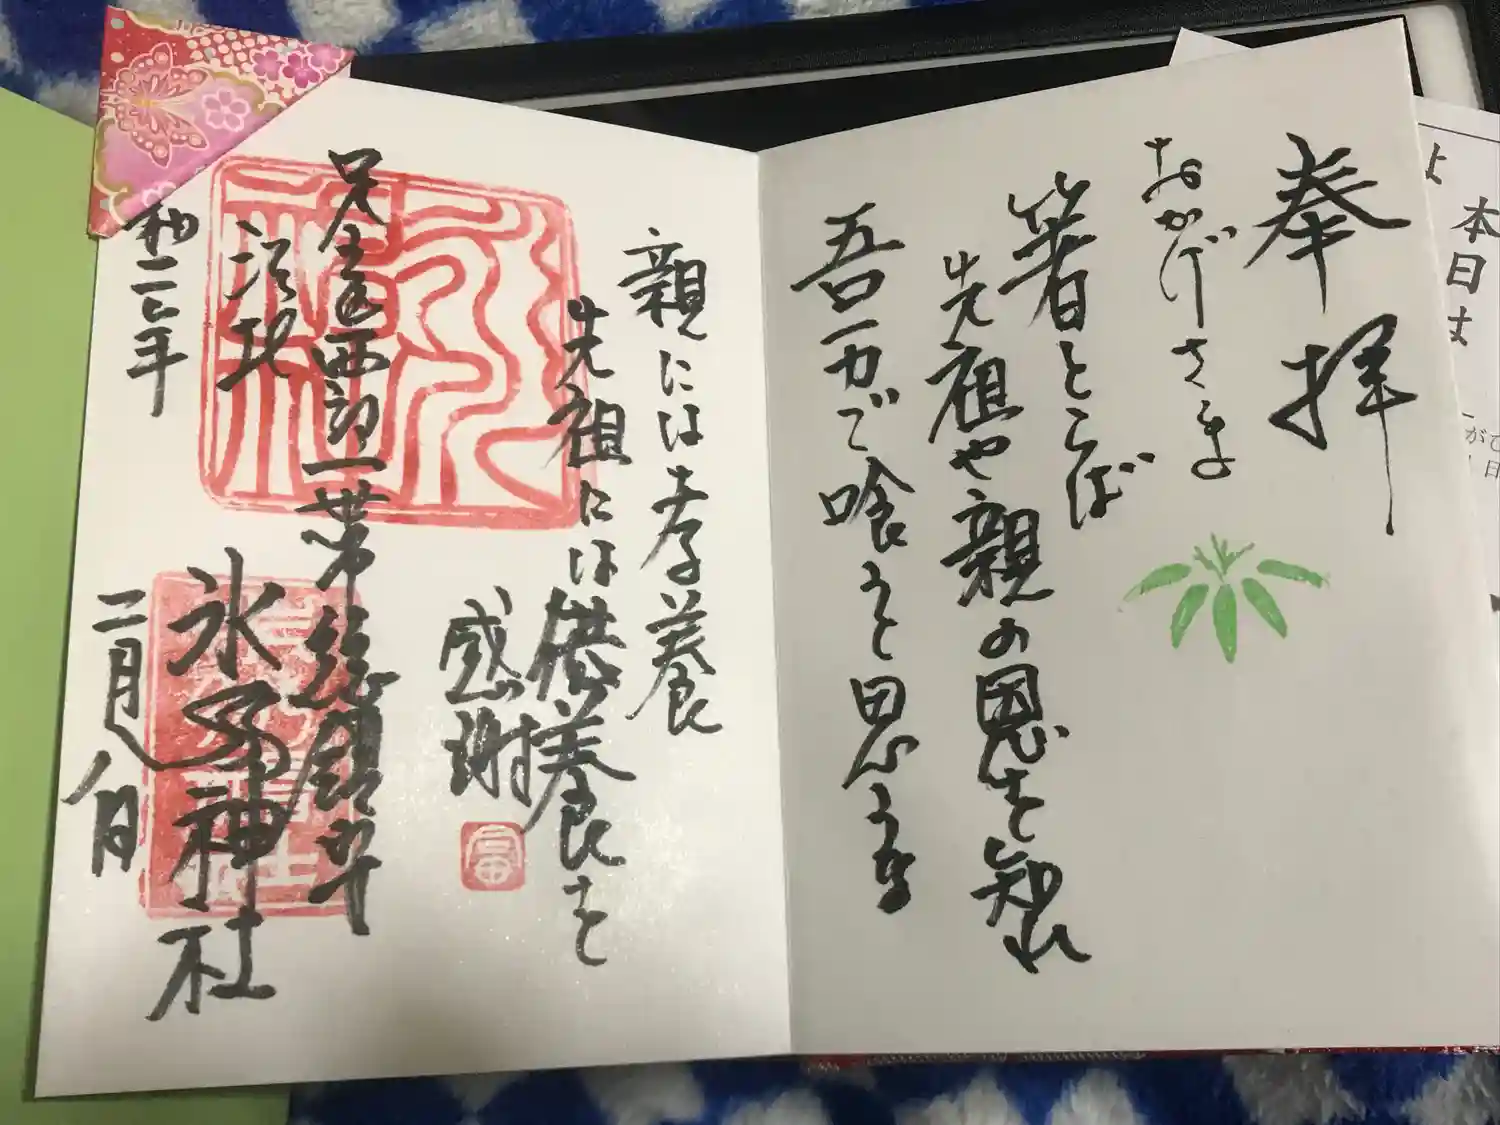 本日は
よ
奉拝
おかげさま
箸とらば
先祖や親の恩を知れ
吾一力で喰うと思うな
親には孝養
先祖には供養を
感謝
足立區西部一帯総鎮守
江北 氷川神社
和二年 二月八日